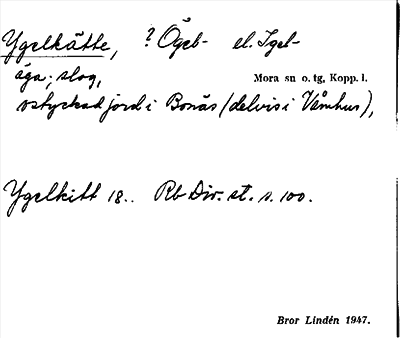 Ygelkätte, ? Ögeb- el. Igel-
äga; slog, Mora sn o. tg, Kopp. l.
ostyckad jord i Bonäs (delvis i Våmhus),
Ygelkitt 18.. Rb Div. st. s. 100.
Bror Lindén 1947.